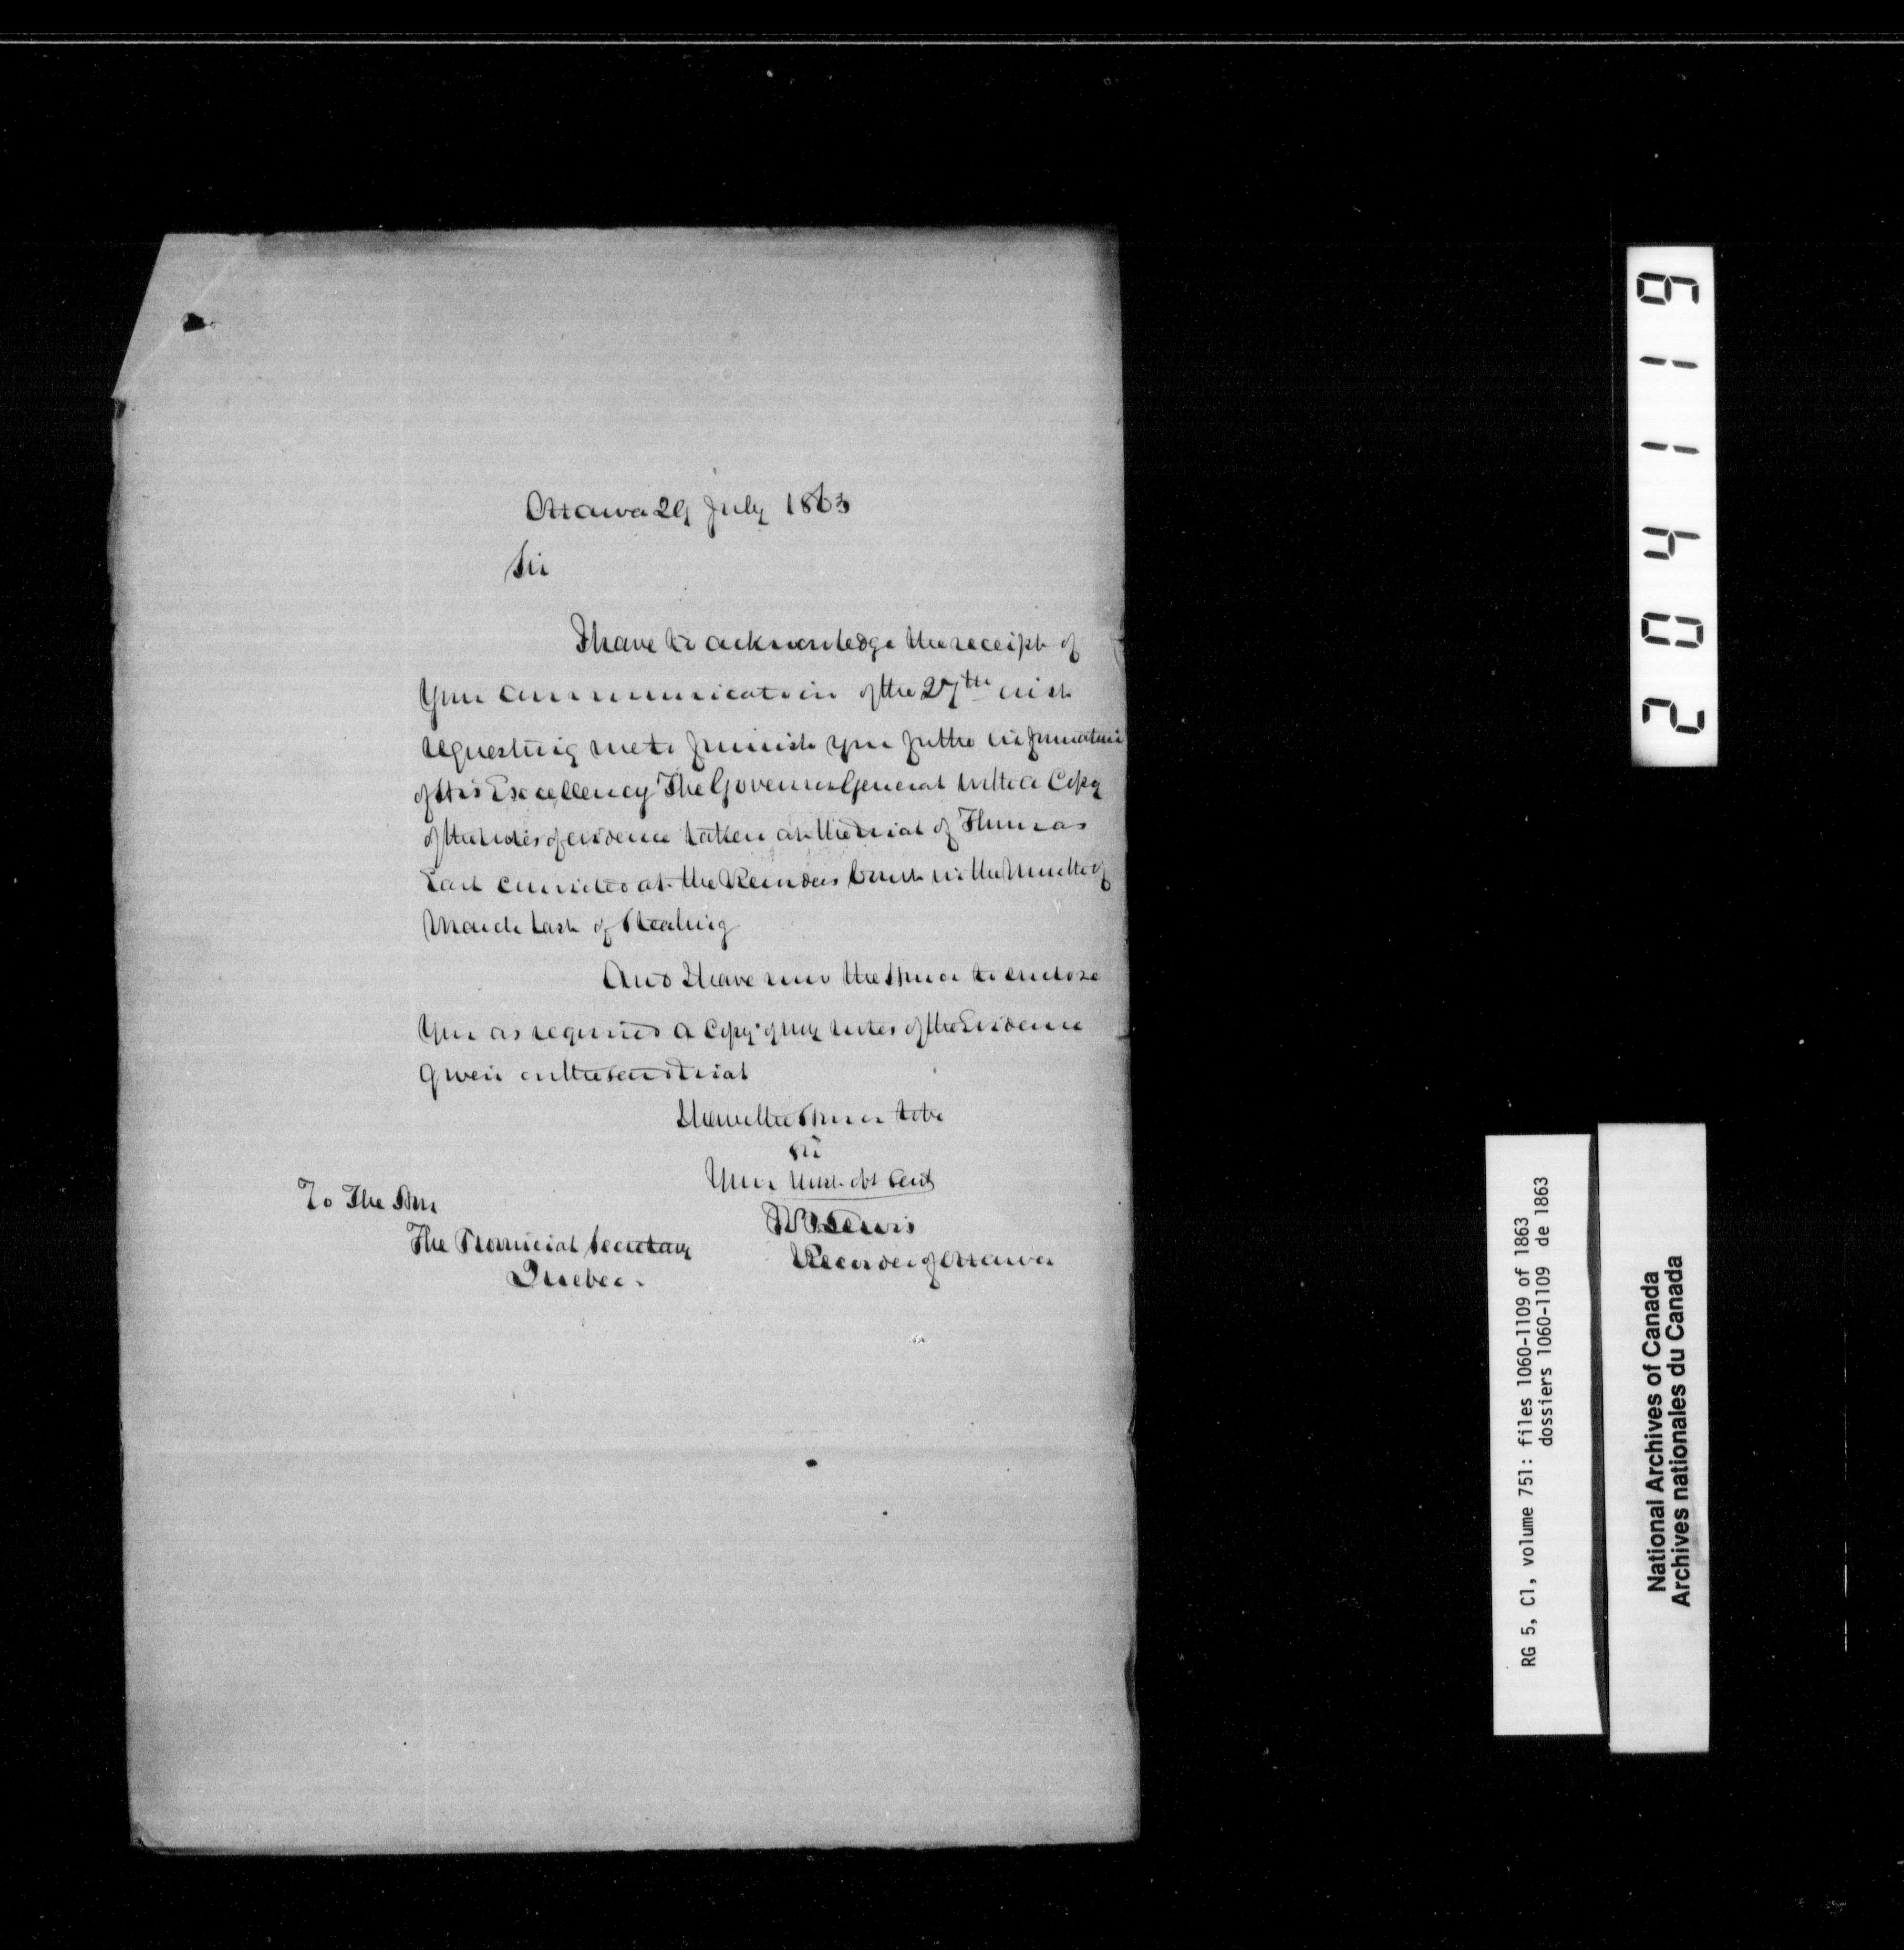 Ottawa 29 July 1863
Sir
I have to acknowledge the receipt of
your communication of the 27th inst
requesting me to furnish you for the information
of His Excellency The Governor General with a Copy
of the notes of evidence taken at the trial of Thomas
convicted at the Recorders Court in the month of
March last of Stealing
And I have now the honor to enclose
you as required a Copy of my notes of the Evidence
given on the said trial
I have the honor to be
Sir
Your most obt Servt
Lewis
Recorder of Ottawa
To The Hon
The Provincial Secretary
Quebec.
204119
RG 5, C1, volume 751: files 1060-1109 of 1863
dossiers 1060-1109 de 1863
National Archives of Canada
Archives nationales du Canada